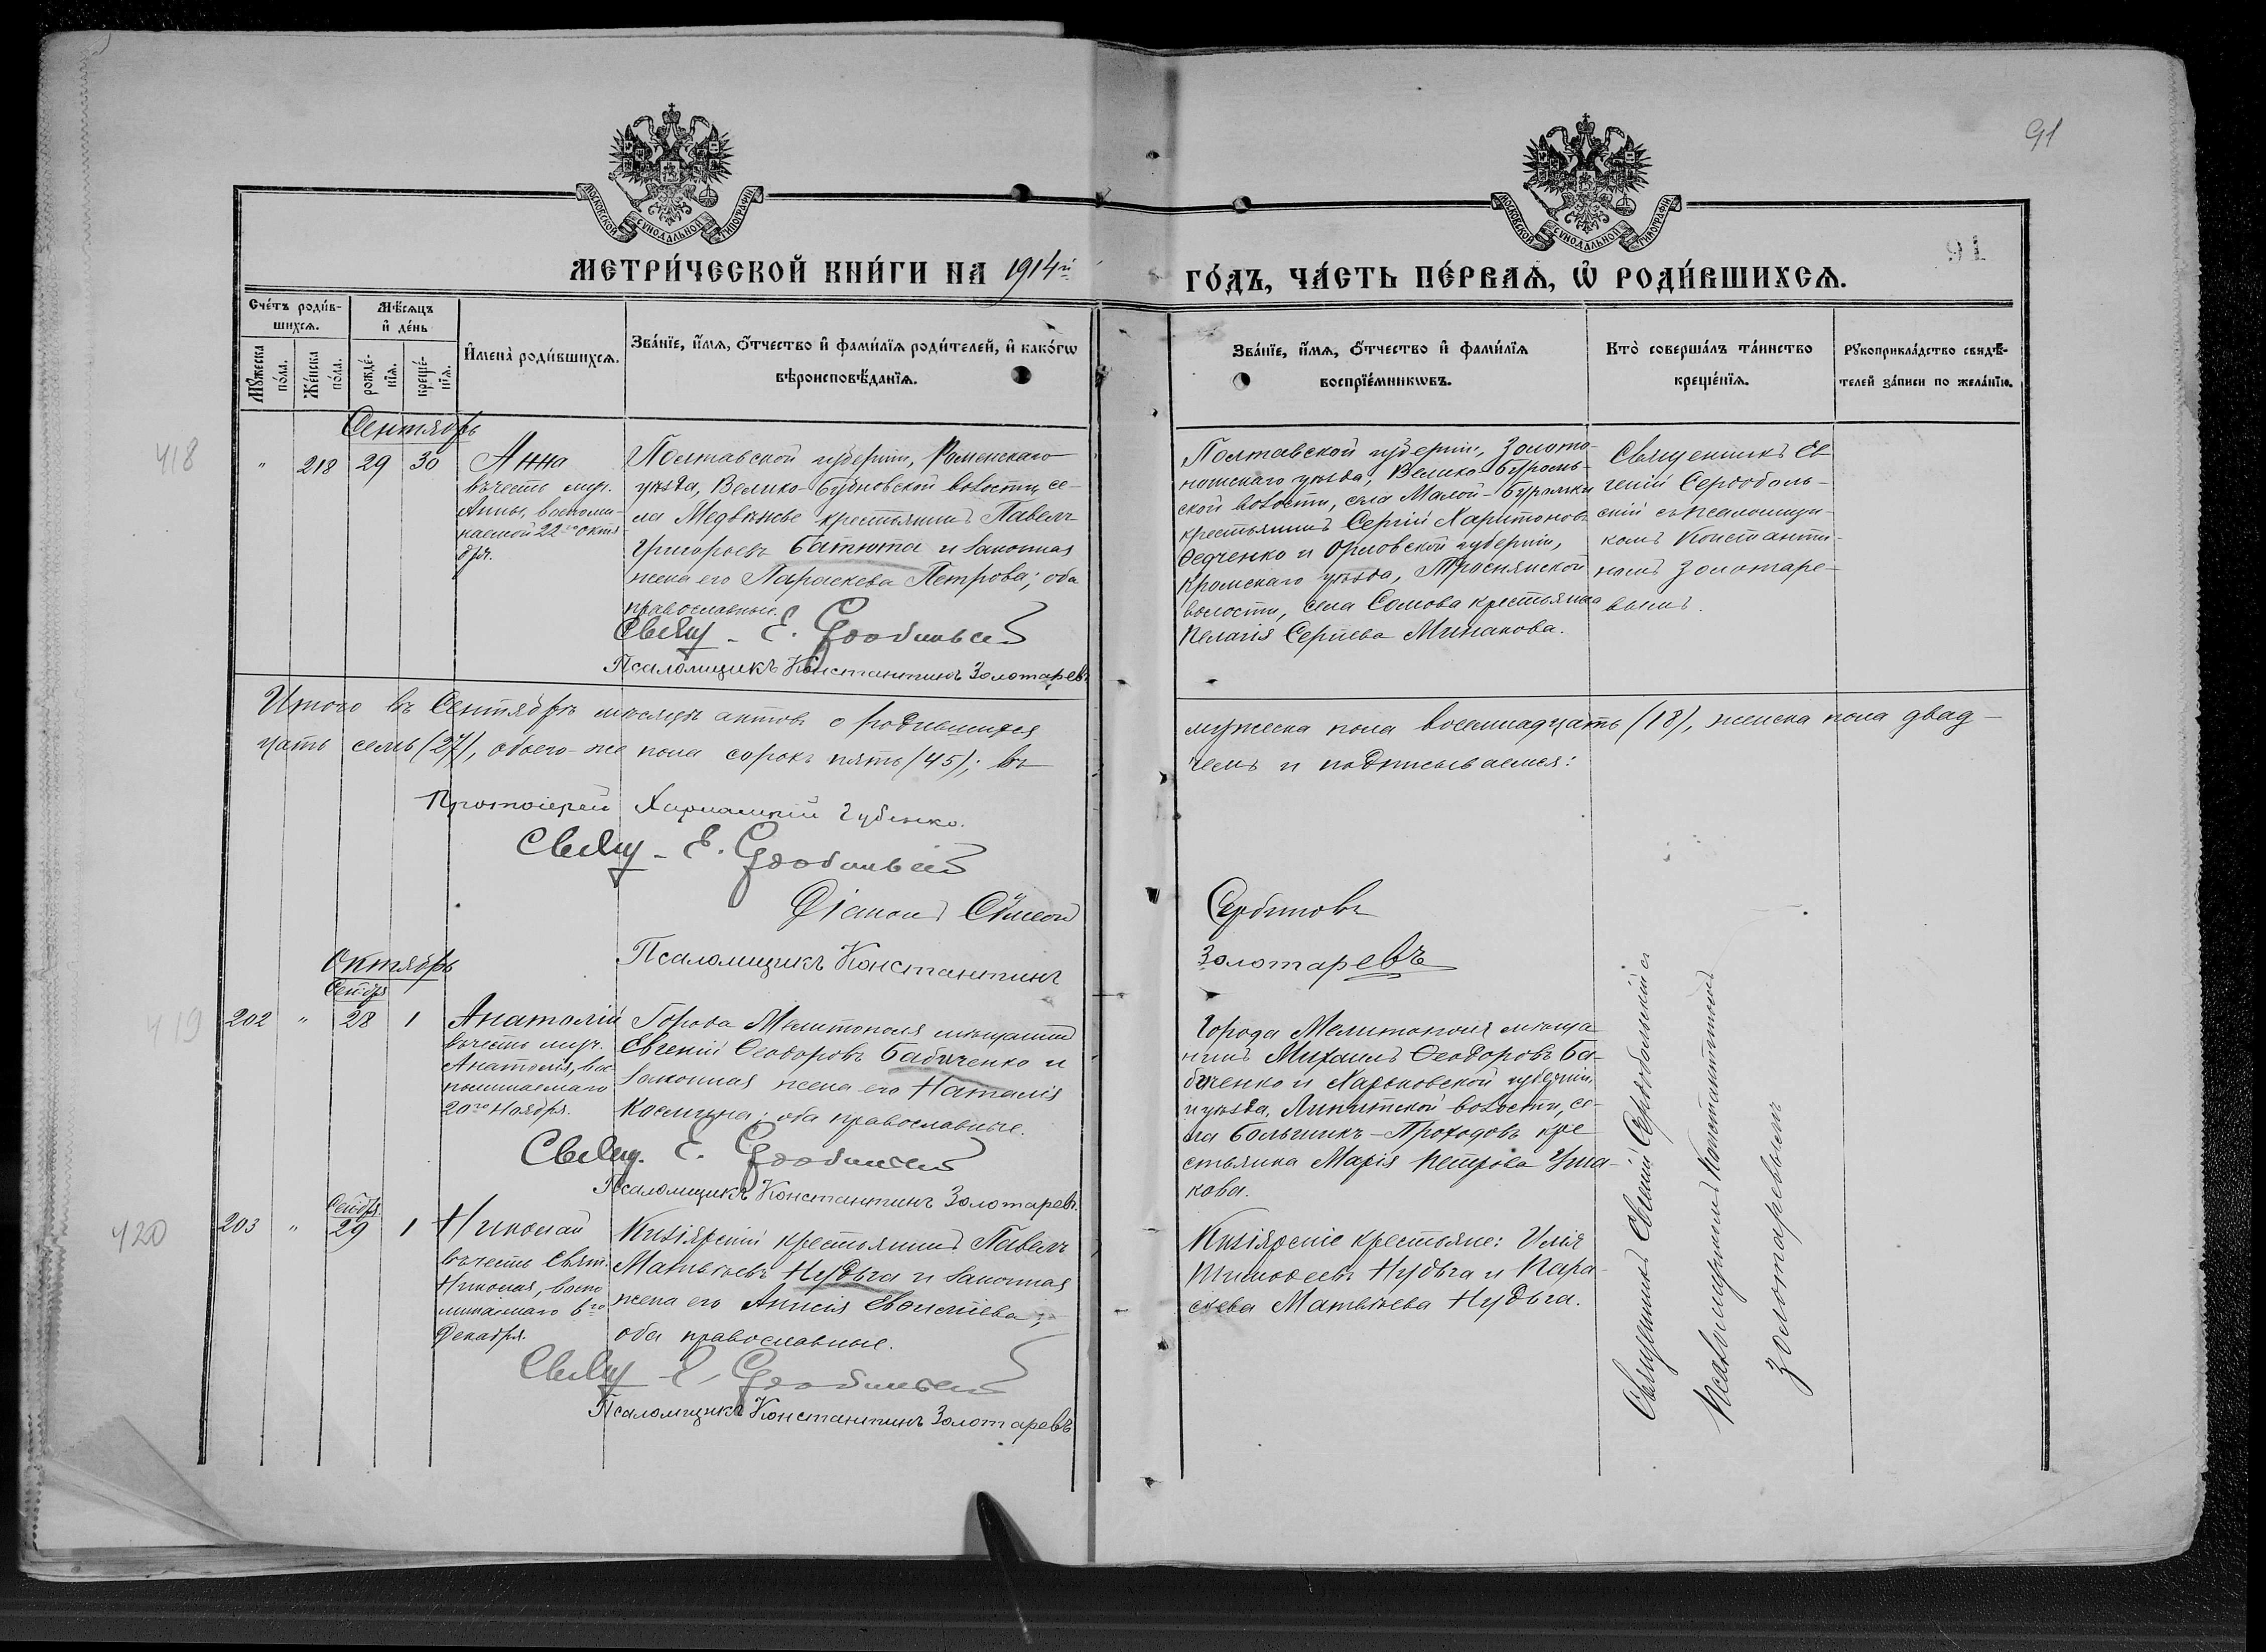 91
МОСКОВСКОЙ СѴНОДАЛЬНОЙ ТИПОГРАФІИ
МОСКОВСКОЙ СѴНОДАЛЬНОЙ ТИПОГРАФІИ
91
МЕТРИ́ЧЕСКОЙ КНИ́ГИ НА 1914й
ГО́ДЪ, ЧА́СТЬ ПЕ́РВАѦ, Ѡ РОДИ́ВШИХСѦ.
Сче́тъ роди́в-
шихсѧ.
Мѣ́сѧцъ
и де́нь
Мꙋ́жеска
по́ла.
Же́нска
по́ла.
рожде́-
нїѧ.
креще́-
нїѧ.
Имена̀ роди́вшихсѧ.
Зва́нїе, и́мѧ, о́тчество и фами́лїѧ роди́телей, и како́гѡ
вѣроисповѣ́данїѧ.
Зва́нїе, и́мѧ, о́тчество и фами́лїѧ
воспрїе́мникѡвъ.
Кто̀ соверша́лъ та́инство
креще́нїѧ.
Рꙋкоприкла́дство свидѣ́-
телей за́писи по жела́нїю.
Сентябрь
418
" 218 29 30
Анна
въ честь муч.
Анны, воспоми-
наемой 22го октя
бря.
Полтавской губерніи, Роменскаго
уѣзда, Велико-Бубновской волости, се-
ла Медвѣжье крестьянинъ Павелъ
Григорьевъ Батюта и законная
жена его Параскева Петрова; оба
православные.
Свящ. Е. Сердобольскій
Псаломщикъ Константинъ Золотаревъ
Полтавской губерніи, Золото-
ношскаго уѣзда, Велико-Буромь-
ской волости, села Малой-Буромки
крестьянинъ Сергій Харитоновъ
Федченко и Орловской губерніи,
Кромскаго уѣзда, Троснянской
волости, села Сомова крестьянка
Пелагія Сергіева Минакова.
Священникъ Ев
геній Сердоболь-
скій съ псаломщи-
комъ Константи-
номъ Золотаре-
вымъ.
Итого въ Сентябрѣ мѣсяцѣ актовъ о родившихся
мужеска пола восемнадцать (18), женска пола двад-
цать семь (27), обоего-же пола сорокъ пять (45); въ
чемъ и подписываемся:
Протоіерей Харлампій Губенко.
Свящ. Е. Сердобольскій
Діаконъ Сѷмеон
Сербиновъ
Псаломщикъ Константинъ
Золотаревъ
Октябрь
Сентбря
419
202 " 28 1
Анатолій
въ честь муч.
Анатолія, вос
поминаемаго
20го Ноября.
Города Мелитополя мѣщанинъ
Евгеній Ѳеодоровъ Бабиченко и
законная жена его Наталія
Космина; оба православные.
Свящ. Е. Сердобольскій
Псаломщикъ Константинъ Золотаревъ.
Города Мелитополя мѣща
нинъ Михаилъ Ѳеодоровъ Ба-
биченко и Харьковской губерніи
и уѣзда, Липитской волости, се-
ла Большихъ-Проходовъ кре
стьянка Марія Петрова Уша-
кова.
Сентбря
420
203 " 29 1
Николай
въ честь Свят.
Николая, воспо
минаемаго 6го
Декабря.
Кизіярскій крестьянинъ Павелъ
Матвѣевъ Нудьга и законная
жена его Анисія
оба православные.
Свящ. Е. Сердобольскій
Псаломщикъ Константинъ Золотаревъ
Кизіярскіе крестьяне: Илія
Тимоѳеевъ Нудьга и Пара-
скева Матвѣева Нудьга.
Священникъ Евгеній Сердобольскій съ
псаломщикомъ Константиномъ
Золотаревымъ